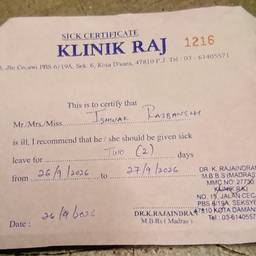 SICK CERTIFICATE
KLINIK RAJ 1216
Jln Cecawi PBS 6/19A, Sek. 6, Kota D'sara, 47810 P.J. Tel : 03 - 61405571
This is to certify that
Mr./Mrs./Miss
is ill, I recommend that he / she should be given sick
leave for Two (2) days
from 26/9/2026 to 27/9/2026
DR. K. RAJAINDRAN
M.B.B.S (MADRAS)
MMC NO: 27730
KLINIK RAJ
NO. 19, JALAN CECA
PBS 6/19A, SEKSYE
47810 KOTA DAMAN
Tel: 03-6140557
Date : 26/9/2026
DR.K.RAJAINDRA
M.B.Bs ( Madras )